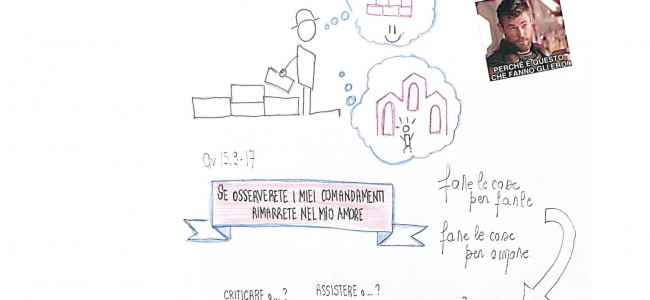 PERCHÉ È QUESTO
CHE FANNO GLI EROI
Gv 15,9-17
SE OSSERVERETE I MIEI COMANDAMENTI
RIMARRETE NEL MIO AMORE
fare le cose
per farle
fare le cose
per amore
CRITICARE o...?
ASSISTERE o...?